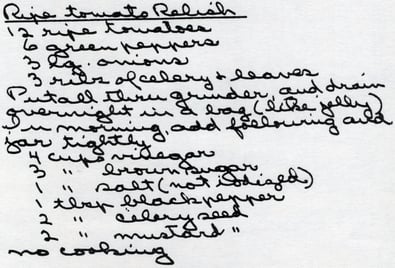 Ripe tomato Relish
12 ripe tomatoes
6 green peppers
3 lg. onions
3 ribs of celery & leaves
Put all thru grinder and drain
overnight in a bag (like jelly)
in morning add following and
jar tightly
4 cups vinegar
3 " brown sugar
1 " salt (not iodized)
1 tbsp black pepper
2 " celery seed
2 " mustard "
no cooking